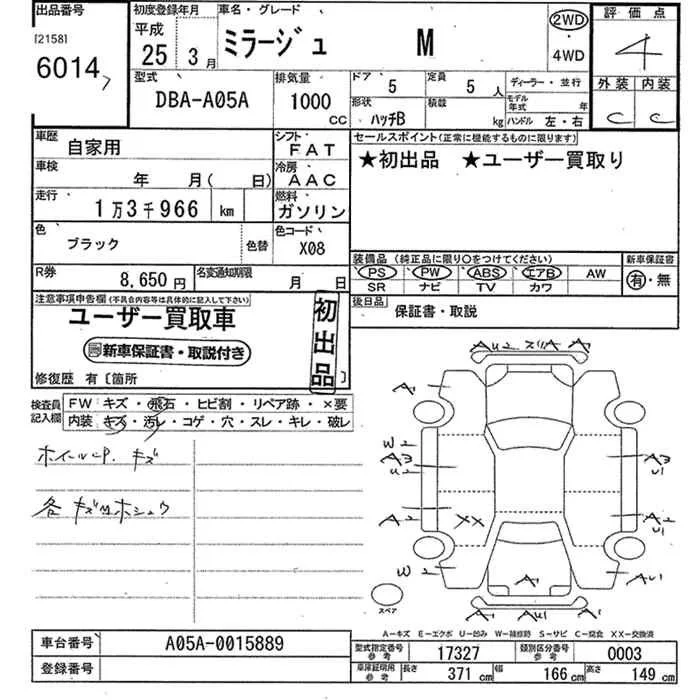 出品番号
[2158]
6014
初度登録年月
平成
25 3月
車名・グレード
ミラージュ M
2WD
・
4WD
評価点
4
外装 内装
C C
型式
DBA-A05A
排気量
1000
CC
ドア 5
定員 5人
ディーラー・並行
形状 ハッチB
積載 kg
モデル年式 年
ハンドル 左・右
車歴 自家用
シフト FAT
セールスポイント(正常に機能するものに限ります)
★初出品 ★ユーザー買取り
車検 年 月( 日)
冷房 AAC
走行 1万3千966 km
燃料 ガソリン
色 ブラック 色替
色コード X08
装備品 (純正品に限り○をつけてください)
PS PW ABS エアB AW
SR ナビ TV カワ
新車保証書
有・無
R券 8,650円
名変通知期限 月 日
後日品 保証書・取説
注意事項申告欄(不具合内容等は具体的に記入して下さい)
ユーザー買取車
新車保証書・取説付き
初出品
修復歴 有〔箇所 〕
検査員記入欄
FW キズ・飛石・ヒビ割・リペア跡・×要
内装 キズ・汚レ・コゲ・穴・スレ・キレ・破レ
ホイールCP. キズ
各 キズMホシュウ
AU2 ズリA A1
A1
W2
A3
A3
U1
A2
XX
A2
U1
W2
A1
AU1
A1 AU1 A1
スペア
A-キズ E-エクボ U-凹み W-補修跡 S-サビ C-腐食 XX-交換済
車台番号 A05A-0015889
登録番号
型式指定番号 参考 17327
類別区分番号 参考 0003
車庫証明用 参考 長さ 371cm 幅 166cm 高さ 149cm